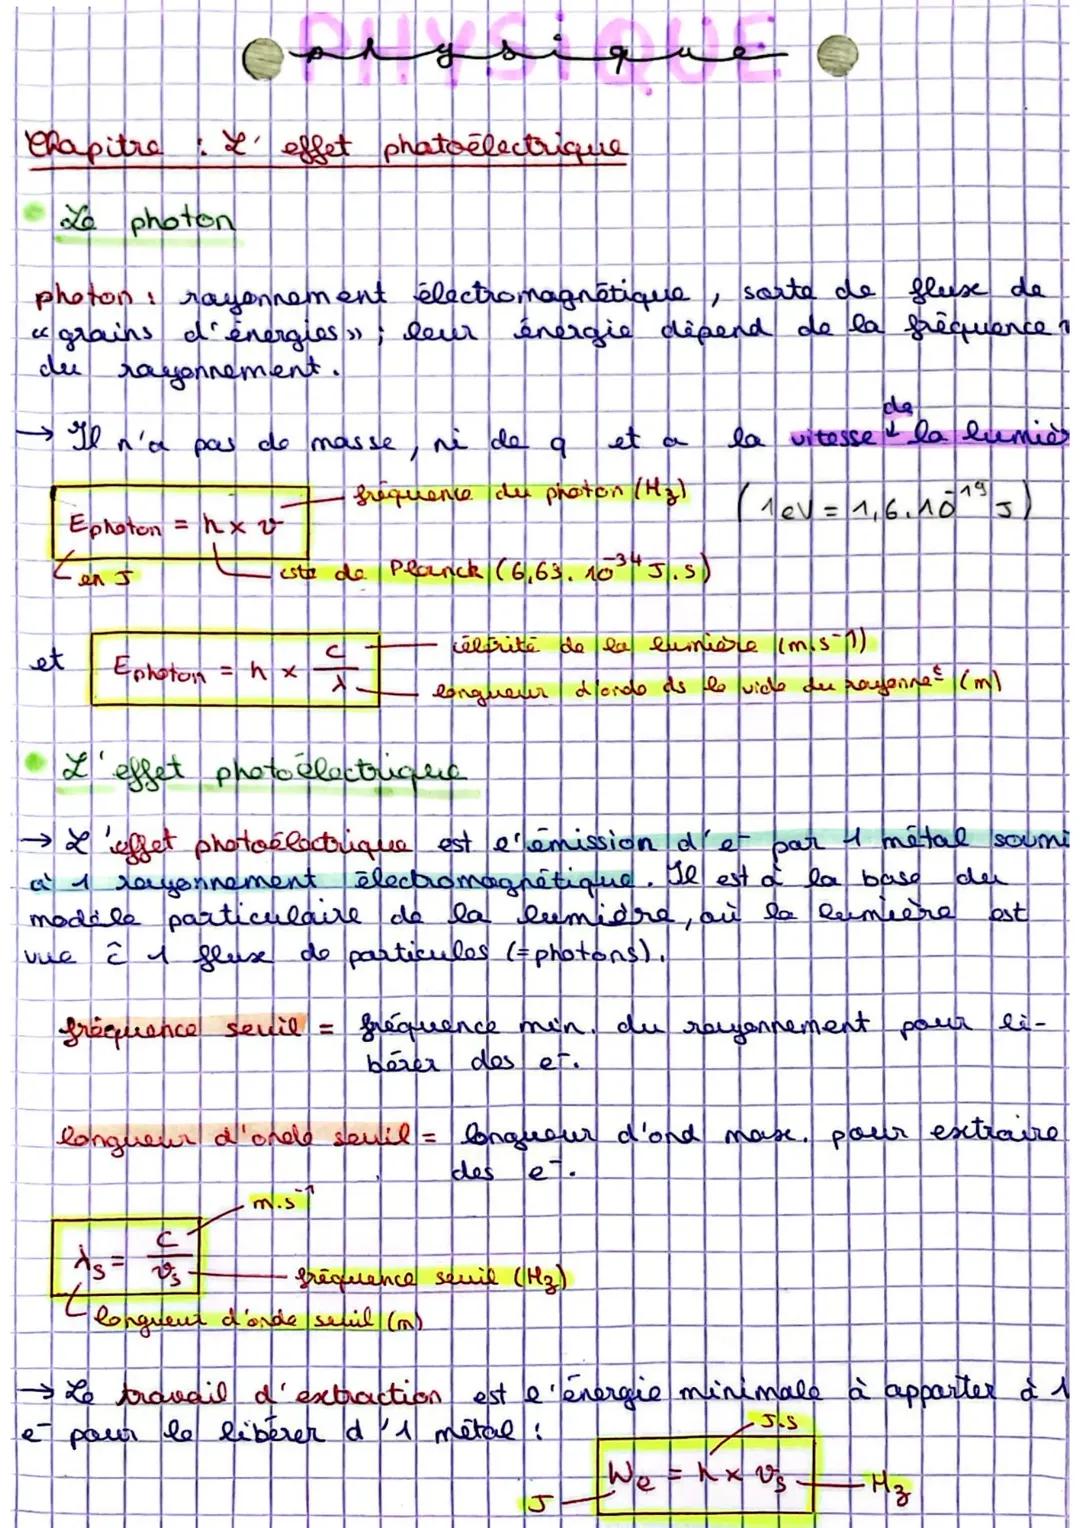 PHYSIQUE
physique
Chapitre : L'effet photoélectrique
Le photon
photon : rayonnement électromagnétique, sorte de flux de
« grains d'énergies » ; leur énergie dépend de la fréquence
du rayonnement.
→ Il n'a pas de masse, ni de q et a la vitesse de la lumiè
Ephoton = h x ν
fréquence du photon (Hz)
(1eV = 1,6.10⁻¹⁹ J)
en J
cste de Planck (6,63.10⁻³⁴ J.s)
et
Ephoton = h x c/λ
célérité de la lumière (m.s⁻¹)
longueur d'onde ds le vide du rayonneᵗ (m)
L'effet photoélectrique
→ L'effet photoélectrique est l'émission d'e⁻ par 1 métal soumi
à 1 rayonnement électromagnétique. Il est à la base du
modèle particulaire de la lumière, où la lumière est
vue ĉ 1 flux de particules (=photons).
fréquence seuil = fréquence min. du rayonnement pour li-
bérer des e⁻.
longueur d'onde seuil = longueur d'ond max. pour extraire
des e⁻.
m.s⁻¹
λs = c/νs
fréquence seuil (Hz)
longueur d'onde seuil (m)
→ Le travail d'extraction est l'énergie minimale à apporter à 1
e⁻ pour le libérer d'1 métal :
J.s
We = h x νs
Hz
J